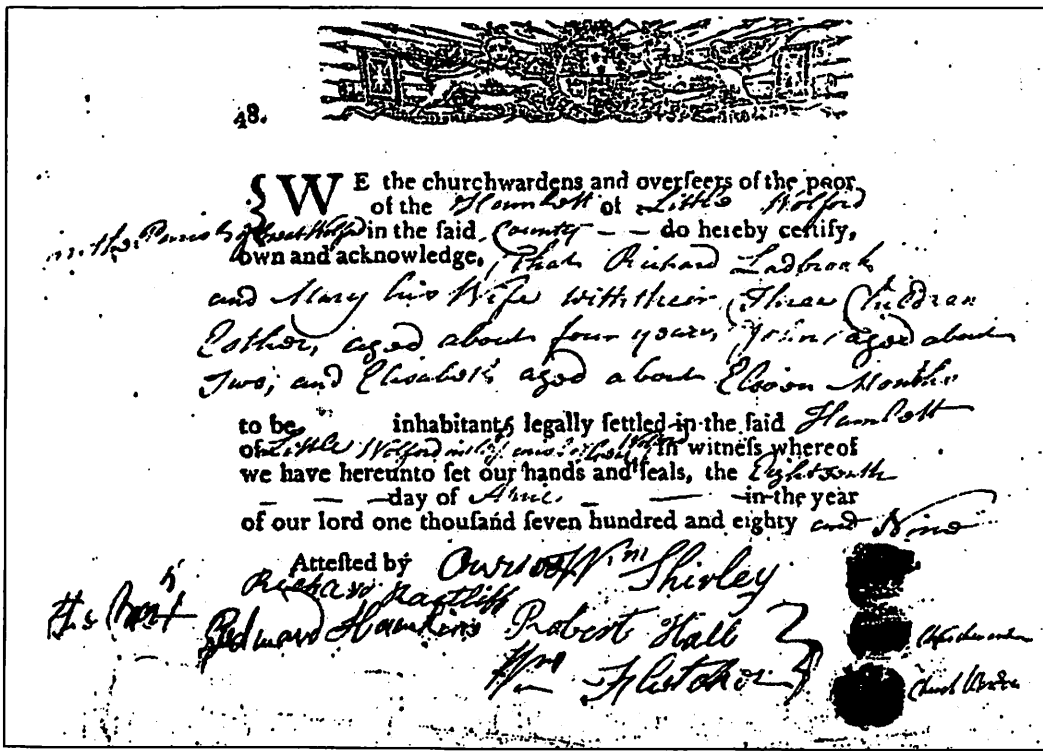 48.
WE the churchwardens and overſeers of the poor
of the Hamlett of Little Wolford
in the Parish of Great Wolford in the ſaid County — — do hereby certify,
own and acknowledge, That Richard Ladbrook
and Mary his Wife with their Three Children
Esther, aged about four years, John aged about
Two, and Elisabeth aged about Eleven Months
to be inhabitants legally ſettled in the ſaid Hamlett
of Little Wolford in witneſs whereof
we have hereunto ſet our hands and ſeals, the Eighteenth
— — — day of April — — in the year
of our lord one thouſand ſeven hundred and eighty and Nine
Atteſted by Wm Shirley
Richard Ratliff
His Mark Edward Hawkins Robert Hall
Wm Fletcher Church Warden